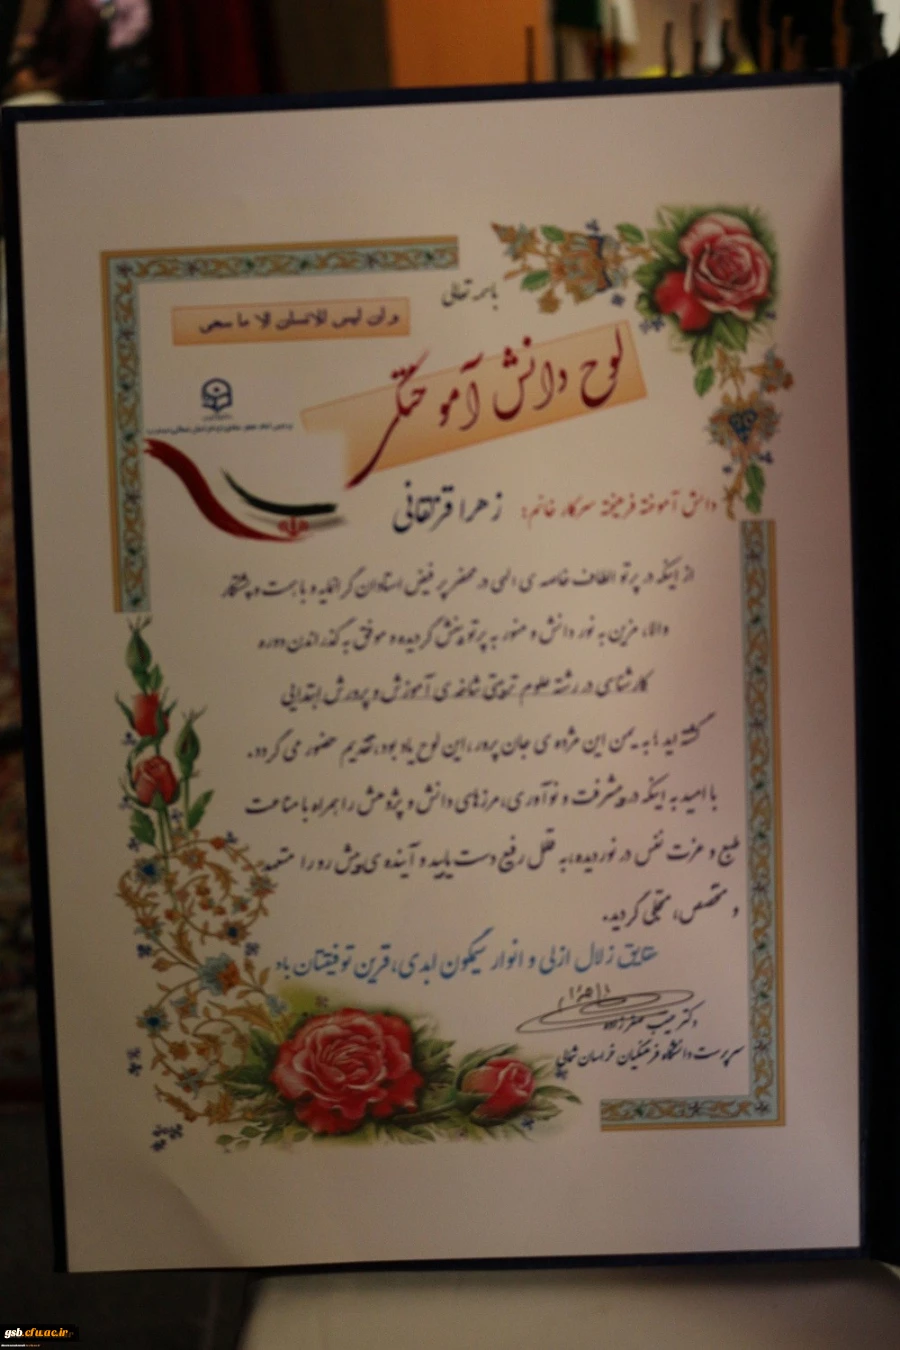 باسمه تعالی
و ان لیس للانسان الا ما سعی
لوح دانش آموختگی
دانش آموخته فرهیخته سرکار خانم: زهرا قرنقانی
از اینکه در پرتو الطاف خاصه ی الهی در محضر پر فیض استادان گرانمایه و با همت و پشتکار
والا، مزین به نور دانش و منور به پرتو بینش گردیده و موفق به گذراندن دوره
کارشناسی در رشته علوم تربیتی شاخه ی آموزش و پرورش ابتدایی
گشته اید؛ به یمن این مژده ی جان پرور، این لوح یادبود، تقدیم حضور می گردد.
با امید به اینکه در پیشرفت و نوآوری، مرزهای دانش و پژوهش را همراه با مناعت
طبع و عزت نفس در نوردیده، به قلل رفیع دست یابید و آینده ی پیش رو را متعهد
و متخصص، متجلی گردید.
حقایق زلال ازلی و انوار سیمگون ابدی، قرین توفیقتان باد
دکتر صفرزاده
سرپرست دانشگاه فرهنگیان خراسان شمالی
gsb.cfu.ac.ir